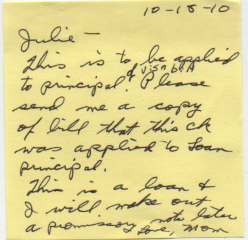 10-15-10
Julie -
This is to be applied
to principal. Please
send me a copy
of bill that this ck
was applied to loan
principal.
This is a loan &
I will make out
a promissory note later
Love, Mom